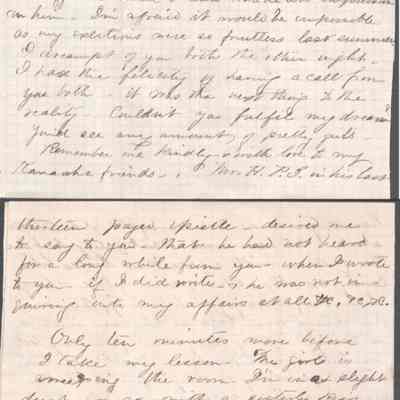 on him - I'm afraid it would be impossible
as my exertions were so fruitless last summer
I dreampt of you both the other night -
I had the felicity of having a call from
you both - it was the next thing to the
reality - Couldn't you fulfil my dream
You'd see any amount of pretty girls -
Remember me kindly - with love to my
Kanawha friends - Mr. H. P. S. in his last
thirteen pages epistle - desired me
to say to you - that he had not heard
for a long while from you - when I wrote
to you if I did write - & he was not in-
quiring into my affairs at all &c, &c, &c.
Only ten minutes more before
I take my lesson - The girls is
the room I'm in a slight